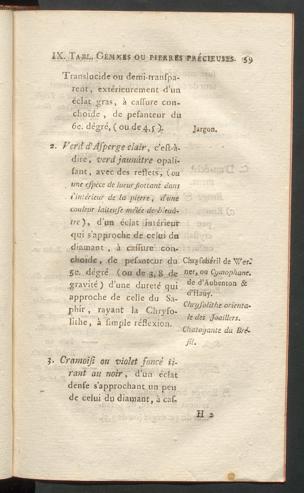 IX. TABL. GEMMES OU PIERRES PRÉCIEUSES. 59
Translucide ou demi-transpa-
rent, extérieurement d'un
éclat gras, à cassure con-
choide, de pesanteur du
6e. dégré, (ou de 4,5). Jargon.
2. Verd d'Asperge clair, c'est-à-
dire, verd jaunâtre opali-
sant, avec des reflets, (ou
une espèce de lueur flottant dans
l'intérieur de la pierre, d'une
couleur laiteuse mêlée de bleuâ-
tre), d'un éclat intérieur
qui s'approche de celui du
diamant, à cassure con-
choide, de pesanteur du
5e. dégré (ou de 3,8 de
gravité) d'une dureté qui
approche de celle du Sa-
phir, rayant la Chryso-
lithe, à simple réflexion.
Chrysobéril de Wer-
ner, ou Cymophane.
de d'Aubenton &
d'Hauy.
Chrysolithe orienta-
le des Joailliers.
Chatoyante du Bré-
sil.
3. Cramoisi ou violet foncé ti-
rant au noir, d'un éclat
dense s'approchant un peu
de celui du diamant, à cas-
H 2